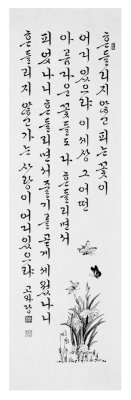 흔들리지 않고 피는 꽃이
어디 있으랴 이 세상 그 어떤
아름다운 꽃들도 다 흔들리면서
피었나니 흔들리면서 줄기를 곧게 세웠나니
흔들리지 않고 가는 사랑이 어디 있으랴